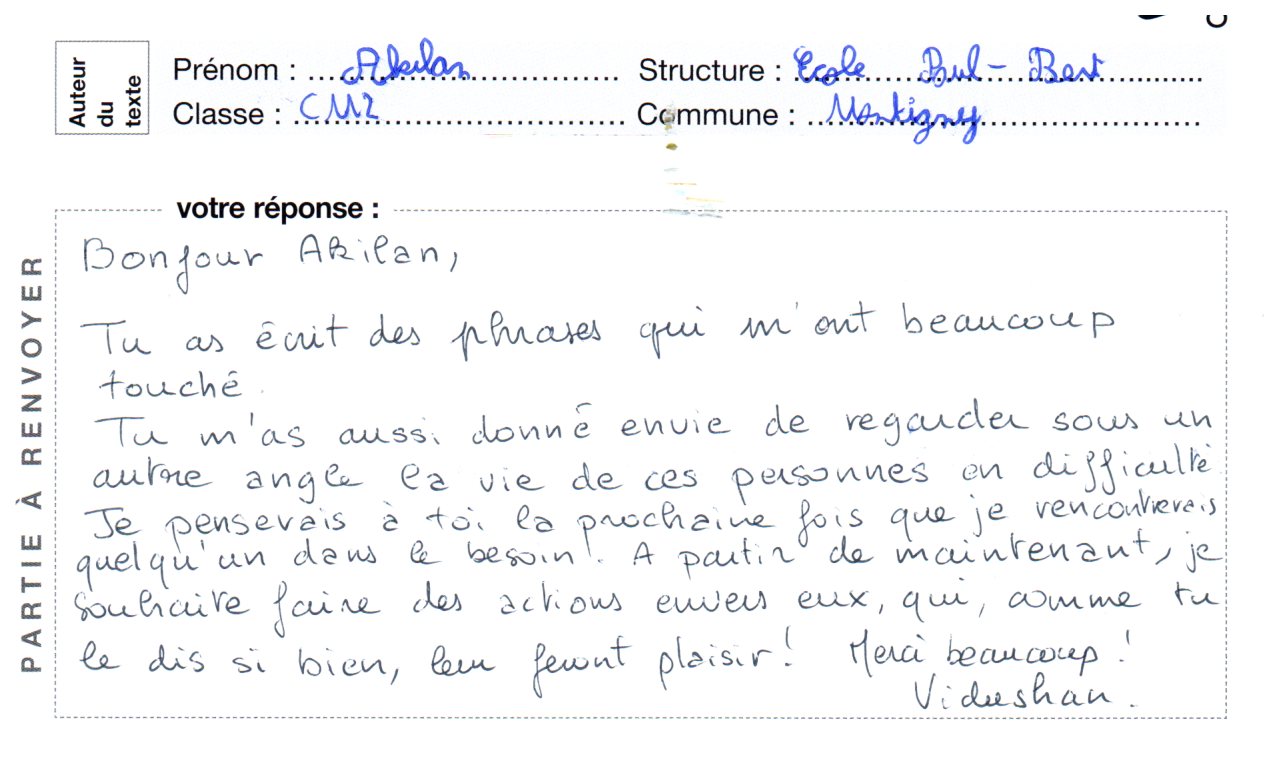 Auteur du texte
Prénom : Akilan Structure : Ecole Paul-Bert
Classe : CM2 Commune : Montigny
votre réponse :
PARTIE À RENVOYER
Bonjour Akilan,
Tu as écrit des phrases qui m'ont beaucoup
touché.
Tu m'as aussi donné envie de regarder sous un
autre angle la vie de ces personnes en difficulté.
Je penserais à toi la prochaine fois que je rencontrerais
quelqu'un dans le besoin. A partir de maintenant, je
souhaite faire des actions envers eux, qui, comme tu
le dis si bien, leur feront plaisir! Merci beaucoup!
Vidushan.